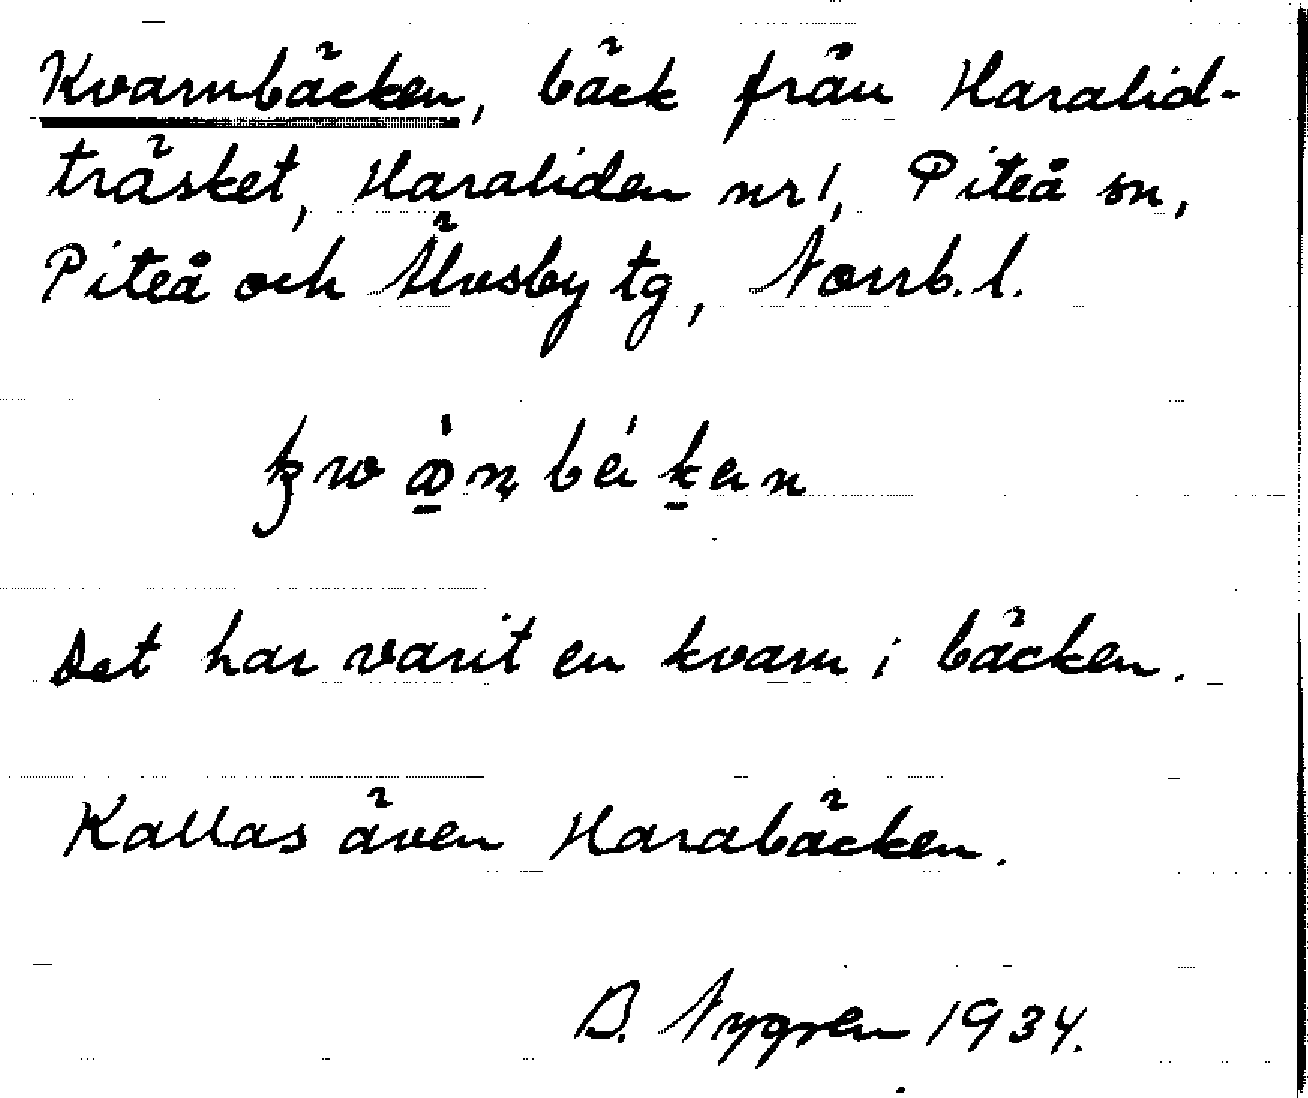 Kvarnbäcken, bäck från Haralid-
träsket, Haraliden nr 1, Piteå sn,
Piteå och Älvsby tg, Norrb. l.
Det har varit en kvarn i bäcken.
Kallas även Harabäcken.
B. Nygren 1934.